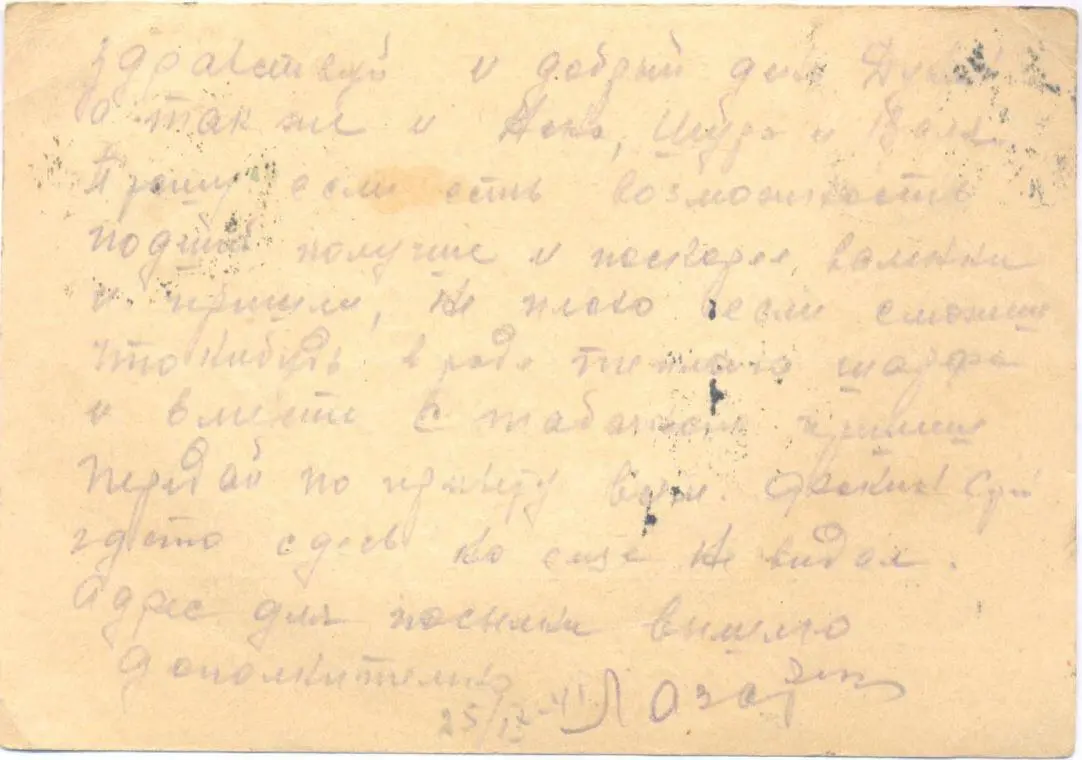 Здравствуй и добрый день Дуня!
А так же и Нена, Шура и Валя.
Прошу если есть возможность
получше и поскорее, валенки
и пришли, не плохо если сможеш
что нибудь в роде теплого шарфа
и вместе с табачком пришлеш
Передай по привету всем.
где то сдесь но еще не видал.
Адрес для посылки вышлю
дополнительно
25/IX-41 Лаза